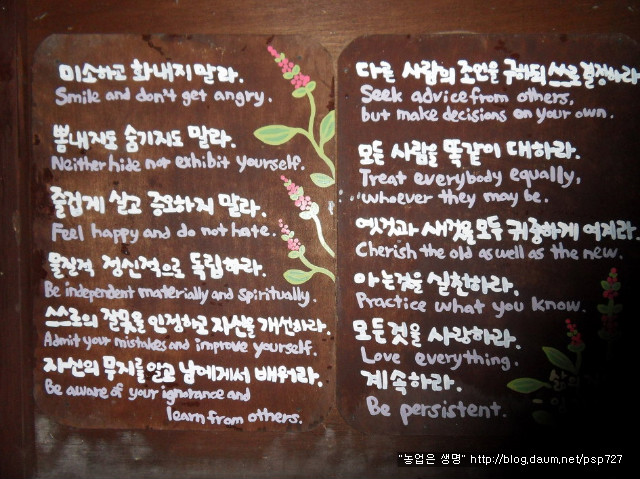 미소하고 화내지 말라.
Smile and don't get angry.
뽐내지도 숨기지도 말라.
Neither hide not exhibit yourself.
즐겁게 살고 증오하지 말라.
Feel happy and do not hate.
물질적 정신적으로 독립하라.
Be independent materially and spiritually.
스스로의 잘못을 인정하고 자신을 개선하라.
Admit your mistakes and improve yourself.
자신의 무지를 알고 남에게서 배워라.
Be aware of your ignorance and
learn from others.
다른 사람의 조언을 구하되 스스로 결정하라
Seek advice from others,
but make decisions on your own.
모든 사람을 똑같이 대하라.
Treat everybody equally,
whoever they may be.
옛것과 새것을 모두 귀중하게 여겨라.
Cherish the old as well as the new.
아는것을 실천하라.
Practice what you know.
모든것을 사랑하라.
Love everything.
계속하라.
Be persistent.
"농업은 생명" http://blog.daum.net/psp727